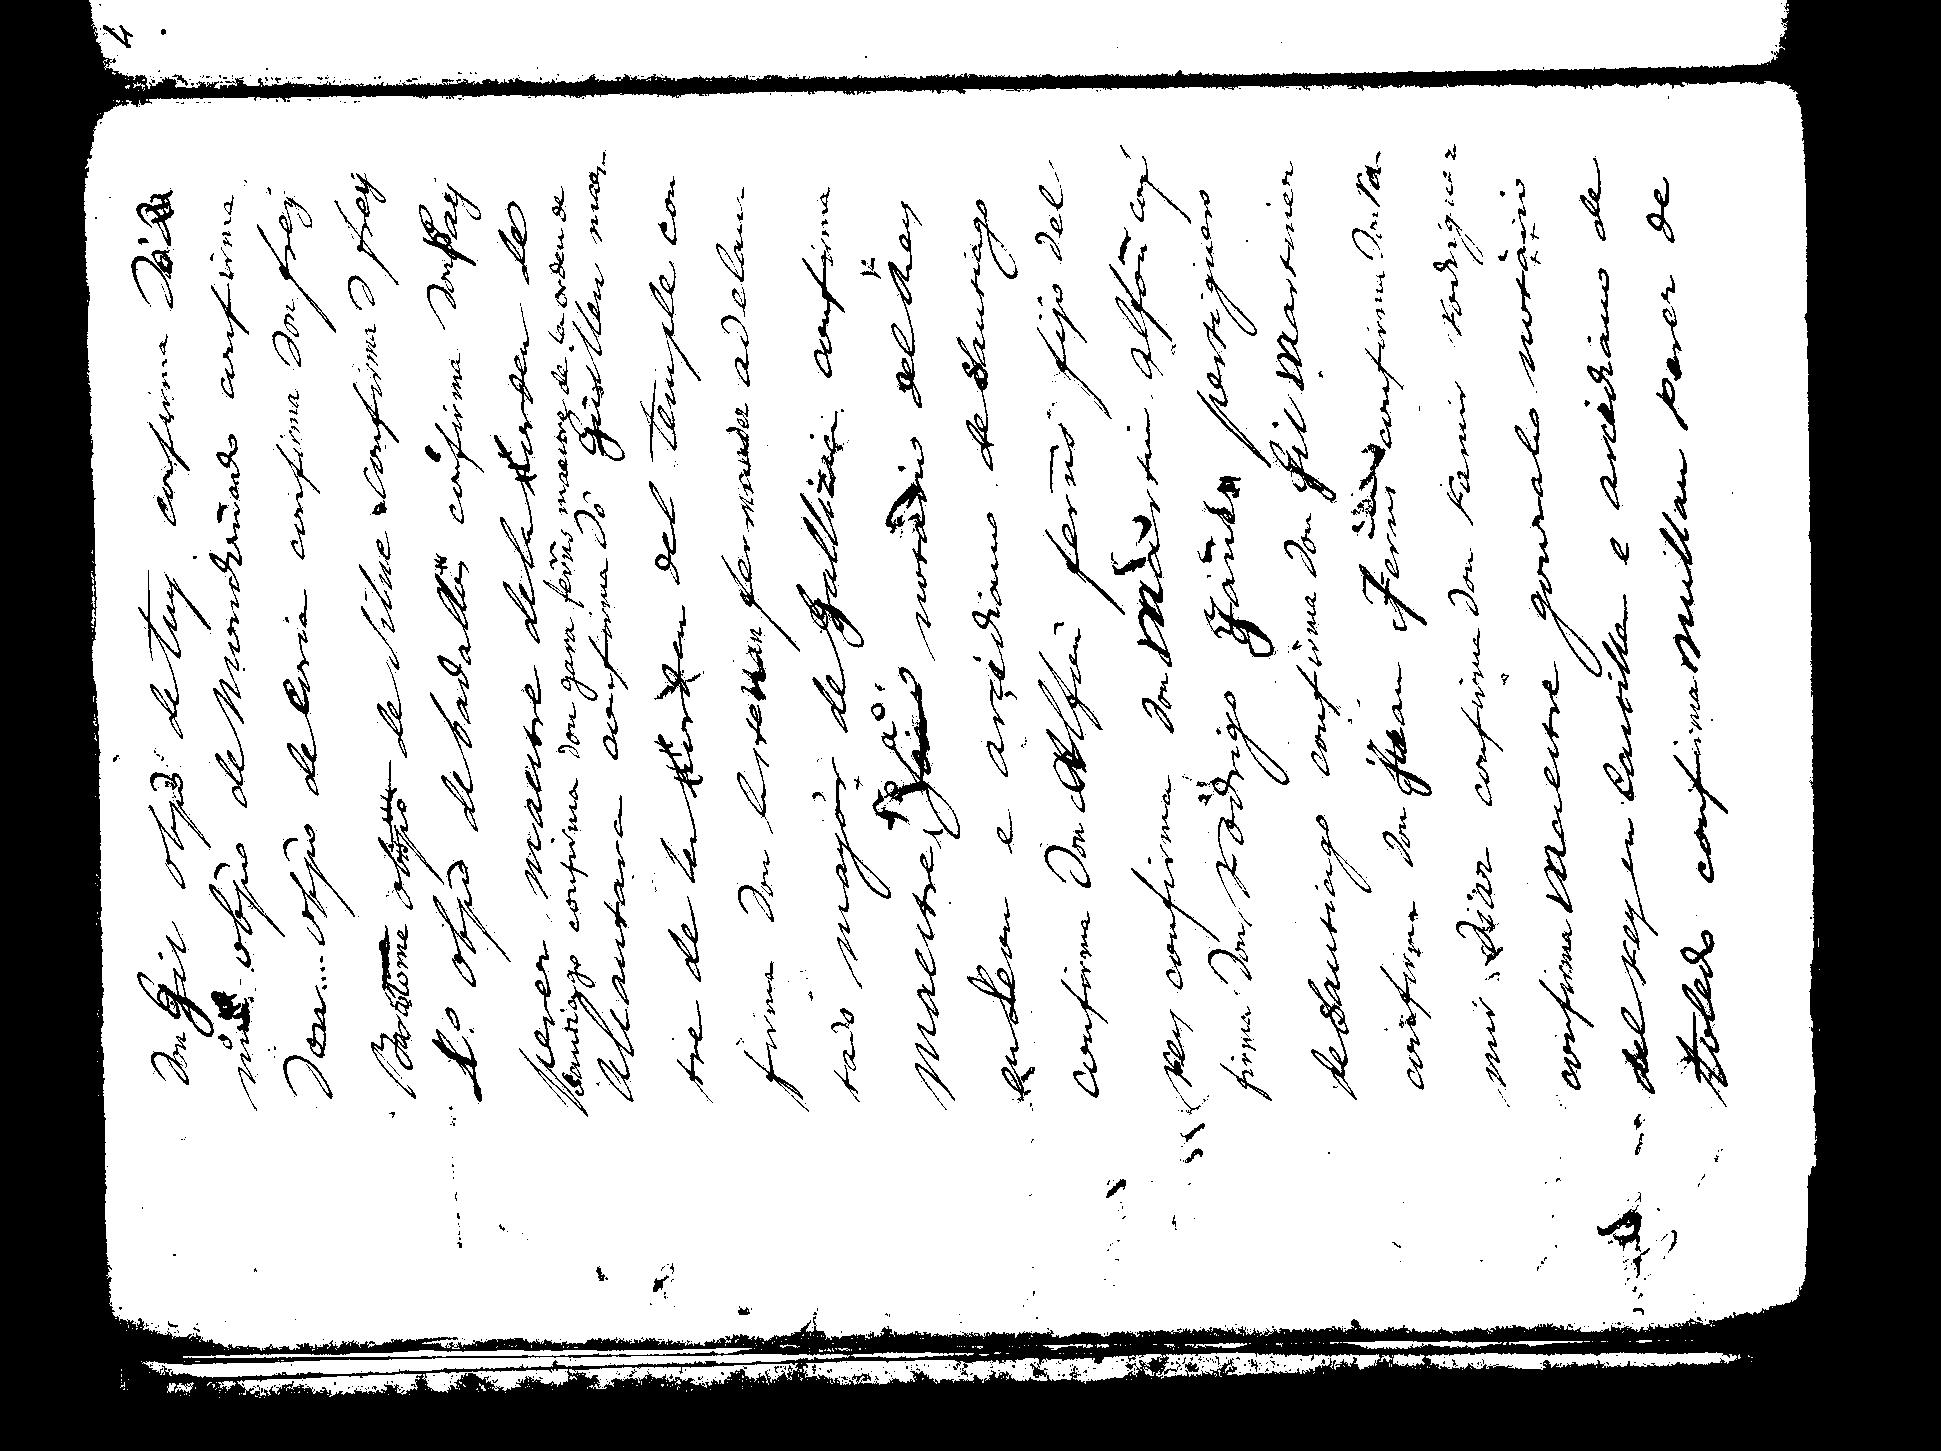 4
Don Gil obpo de tuy confirma Don
obpo de Mondonnedo confirma
Don.... obpo de Coria confirma Don frey
Bartolome obpo de Silue confirma D frey
L.o obpo de badallos confirma don Pay
perez maestre de la Orden de
Santiago confirma don garcia ferrns maestre de la orden de
Alcantara confirma Do Guillen maes-
tre de la Orden del temple con
firma Don esteuan fernandez adelan-
tado mayor de Gallizia confirma
maestre notario del Rey
en Leon e arcediano de Santiago
confirma Don Alffon ferrns fijo del
Rey confirma don Martin Alfon conf
firma Don Rodrigo Yanes pertiguero
de Santiago confirma don Gil Martinez
confirma don Joan Ferns confirma Don Ra-
mir Diaz confirma don Ramir Rodriguez
confirma Maestre gonzalo notario
del Rey en Castilla e arcediano de
Toledo confirma Millan perez de